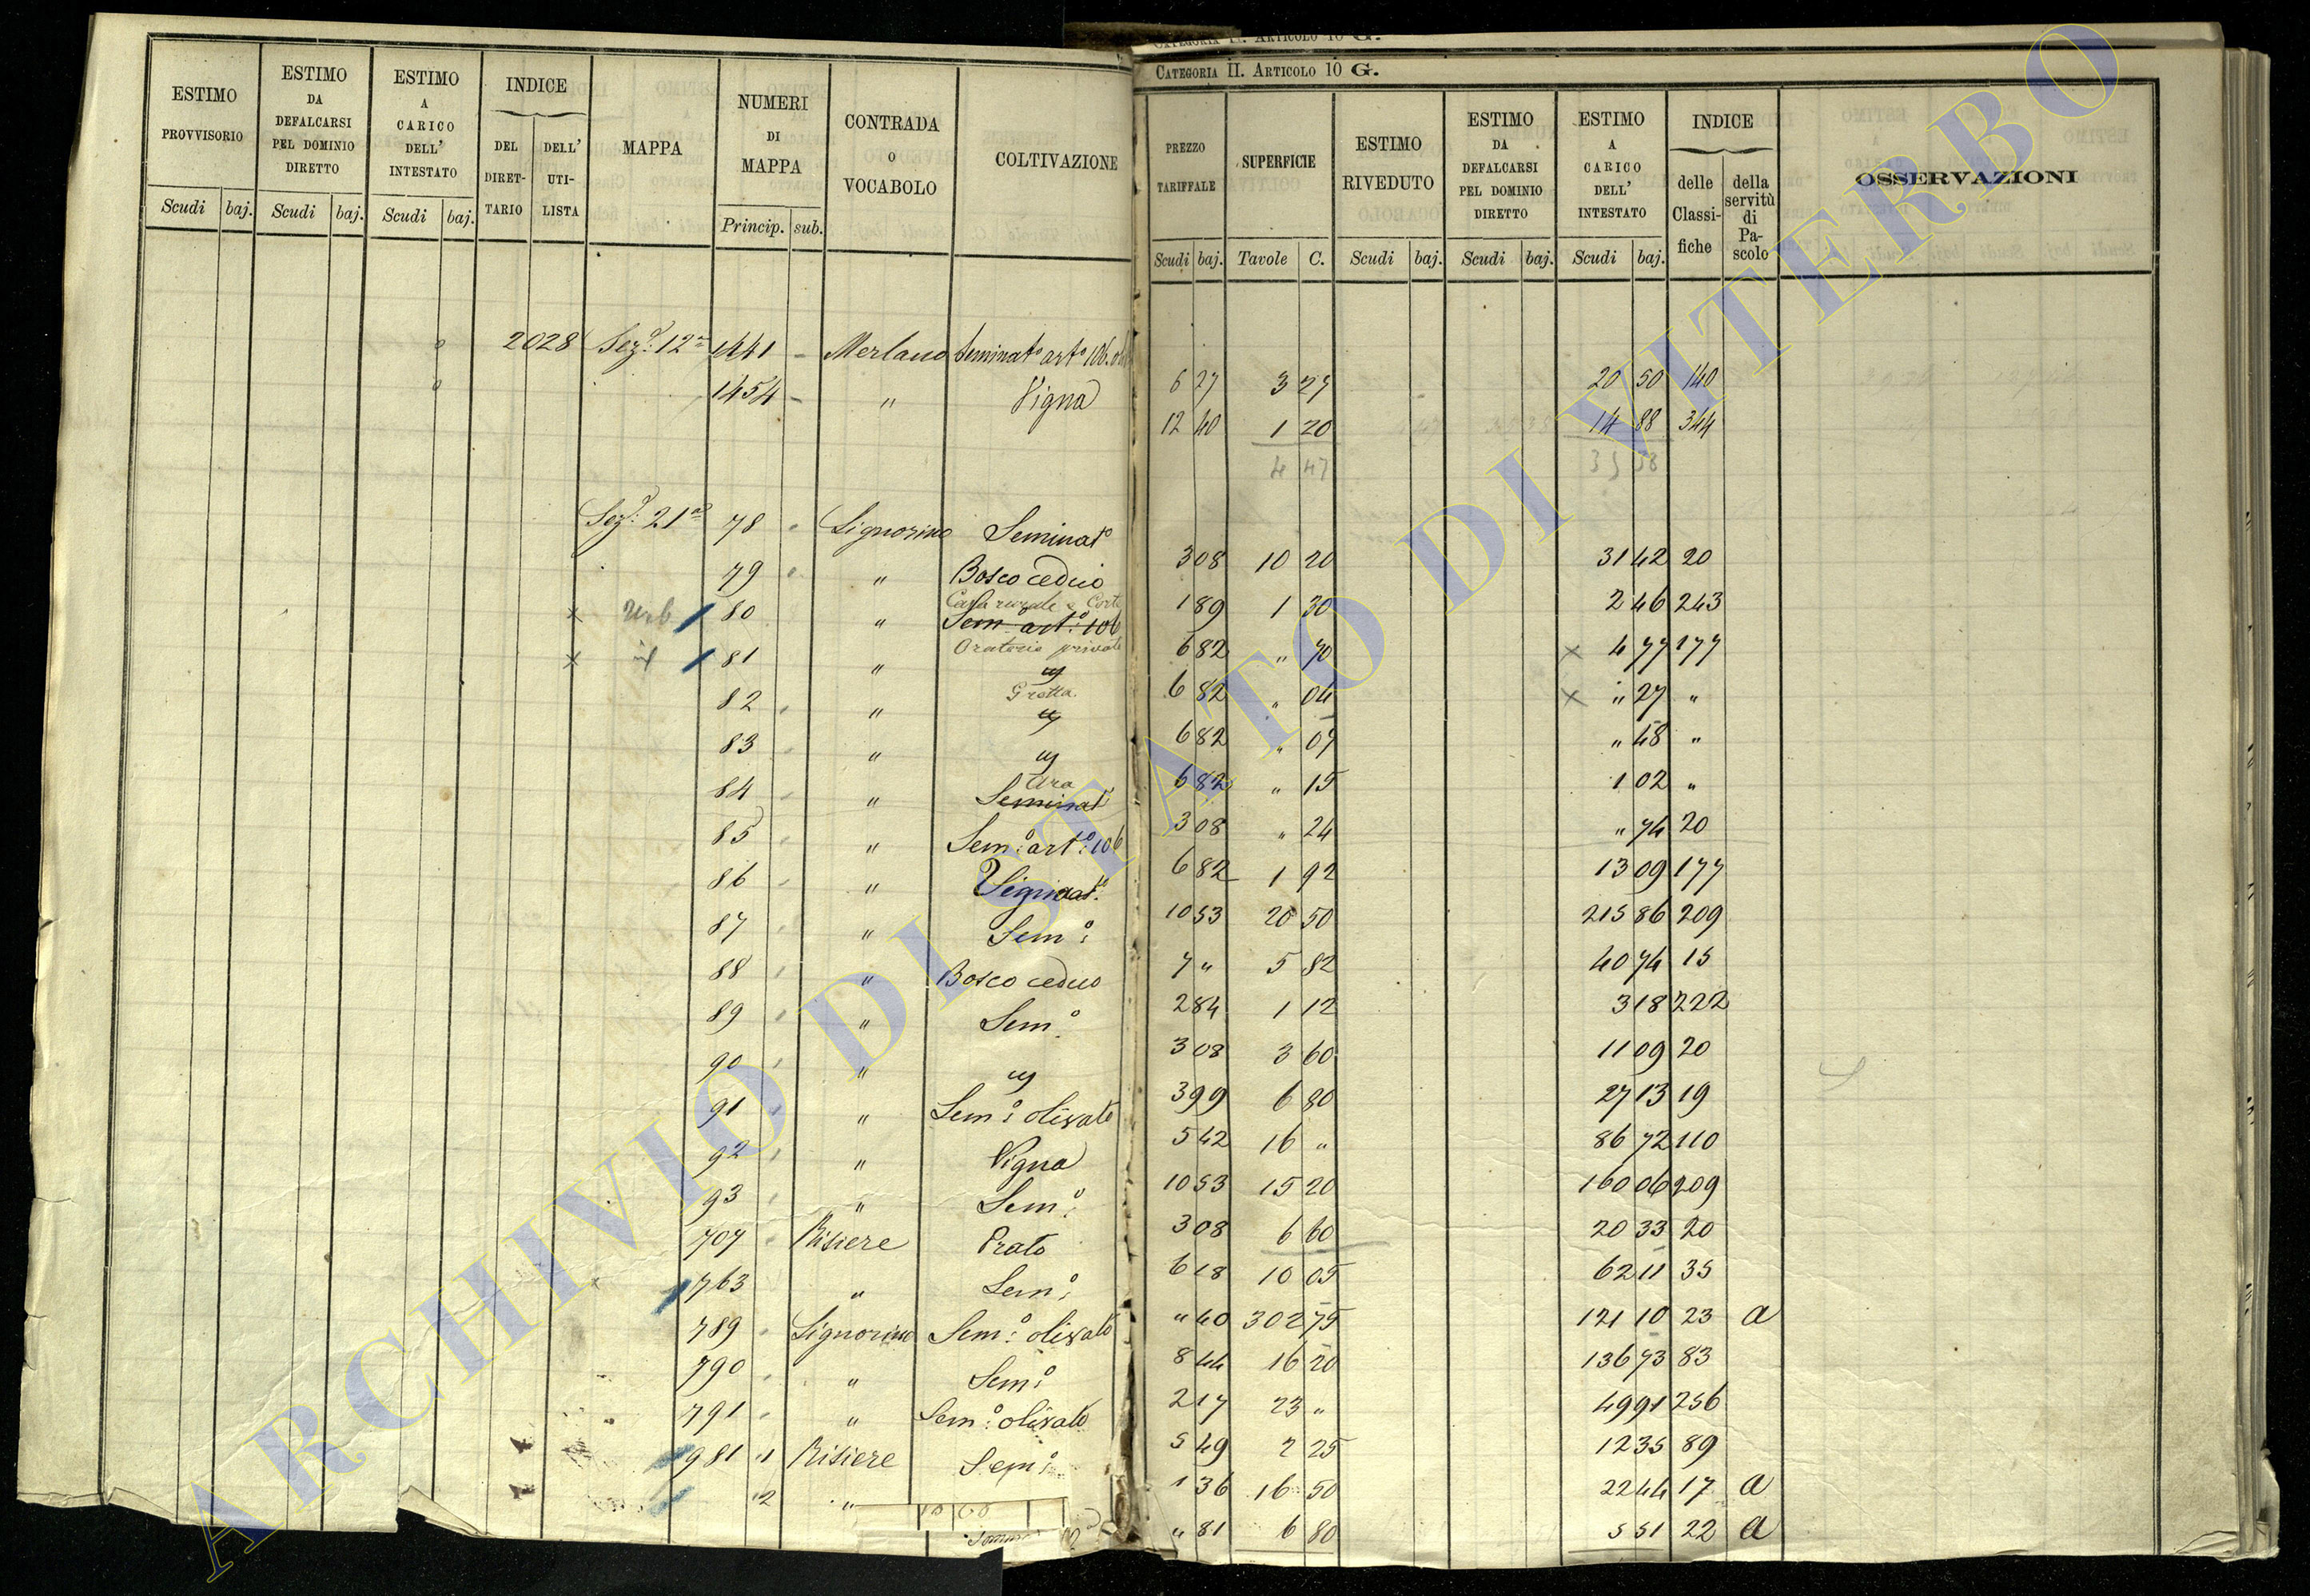 CATEGORIA II. ARTICOLO 10 G.
ESTIMO PROVVISORIO Scudi baj.
ESTIMO DA DEFALCARSI PEL DOMINIO DIRETTO Scudi baj.
ESTIMO A CARICO DELL' INTESTATO Scudi baj.
INDICE
DEL DIRET-TARIO
DELL' UTI-LISTA
MAPPA
NUMERI DI MAPPA Princip. sub.
CONTRADA O VOCABOLO
COLTIVAZIONE
CATEGORIA II. ARTICOLO 10 G.
PREZZO TARIFFALE Scudi baj.
SUPERFICIE Tavole C.
ESTIMO RIVEDUTO Scudi baj.
ESTIMO DA DEFALCARSI PEL DOMINIO DIRETTO Scudi baj.
ESTIMO A CARICO DELL' INTESTATO Scudi baj.
INDICE
delle Classi-fiche
della servitù di Pa-scolo
OSSERVAZIONI
2028 Sez.e 12a 1441 - Merlano Seminato arto 106 6 27 3 27 20 50 140
1454 - " Vigna 12 40 1 20 14 88 344
4 47 35 38
Sez.e 21a 78 Signorino Seminato 3 08 10 20 31 42 20
79 " Bosco ceduo 1 89 1 30 2 46 243
Casa rurale e Corte
x Urb. 80 " Sem. arto: 106 6 82 " 70 x 4 77 177
Oratorio privato
x id 81 " id 6 82 " 04 x " 27 "
Grotta
82 " id 6 82 " 07 " 48 "
83 " id 6 82 " 15 1 02 "
Ara
84 " Seminato 3 08 " 24 " 74 20
85 " Semo: arto: 106 6 82 1 92 13 09 177
86 " Vignato 10 53 20 50 215 86 209
87 " Semo: 7 " 5 82 40 74 15
88 " Bosco ceduo 2 84 1 12 3 18 222
89 " Semo. 3 08 3 60 11 09 20
90 " id 3 99 6 80 27 13 19
91 " Semo: olivato 5 42 16 " 86 72 110
92 " Vigna 10 53 15 20 160 06 209
93 " Semo: 3 08 6 60 20 33 20
707 Risiere Prato 6 18 10 05 62 11 35
763 " Semo: " 40 302 75 121 10 23 a
789 Signorino Semo: olivato 8 44 16 20 136 73 83
790 " Semo: 2 17 23 " 49 91 256
791 " Semo: olivato 5 49 2 25 12 35 89
981 1 Risiere Semo: 1 36 16 50 22 44 17 a
2 " " 81 6 80 5 51 22 a
ARCHIVIO DI STATO DI VITERBO